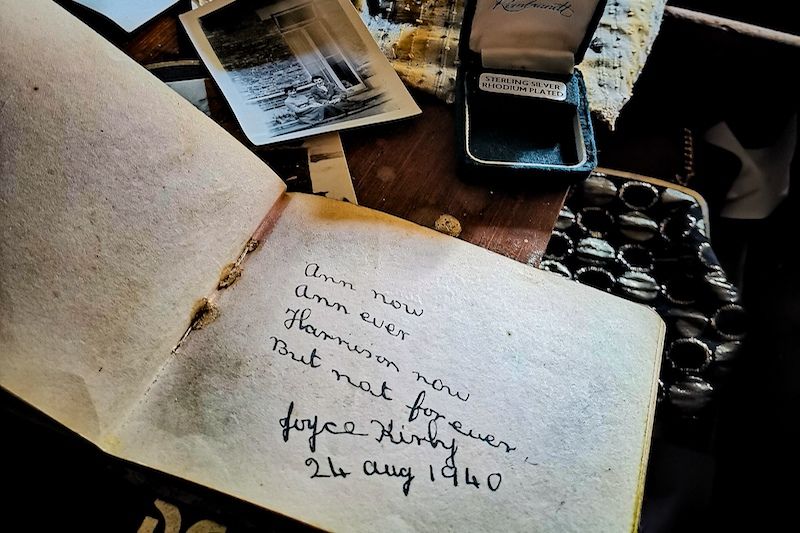 Rembrandt
STERLING SILVER
RHODIUM PLATED
Ann now
Ann ever
Harrison now
But not for ever.
Joyce Kirby
24 Aug 1940